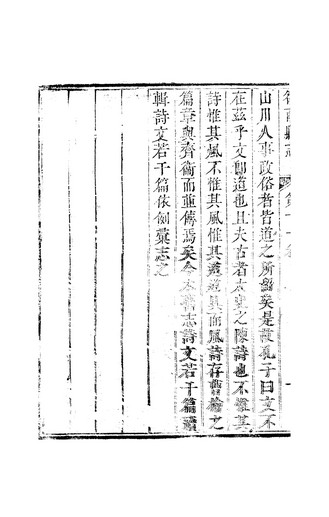 山川人事政俗者皆道之所繇矣是故孔子曰文不
在茲乎文卽道也且夫古者太史之陳詩也不惟其
詩惟其風不惟其風惟其 道其 風詩存 之
篇章與齊衛而並傳焉矣今本舊志詩文若干篇續
輯詩文若干篇依例彙志之